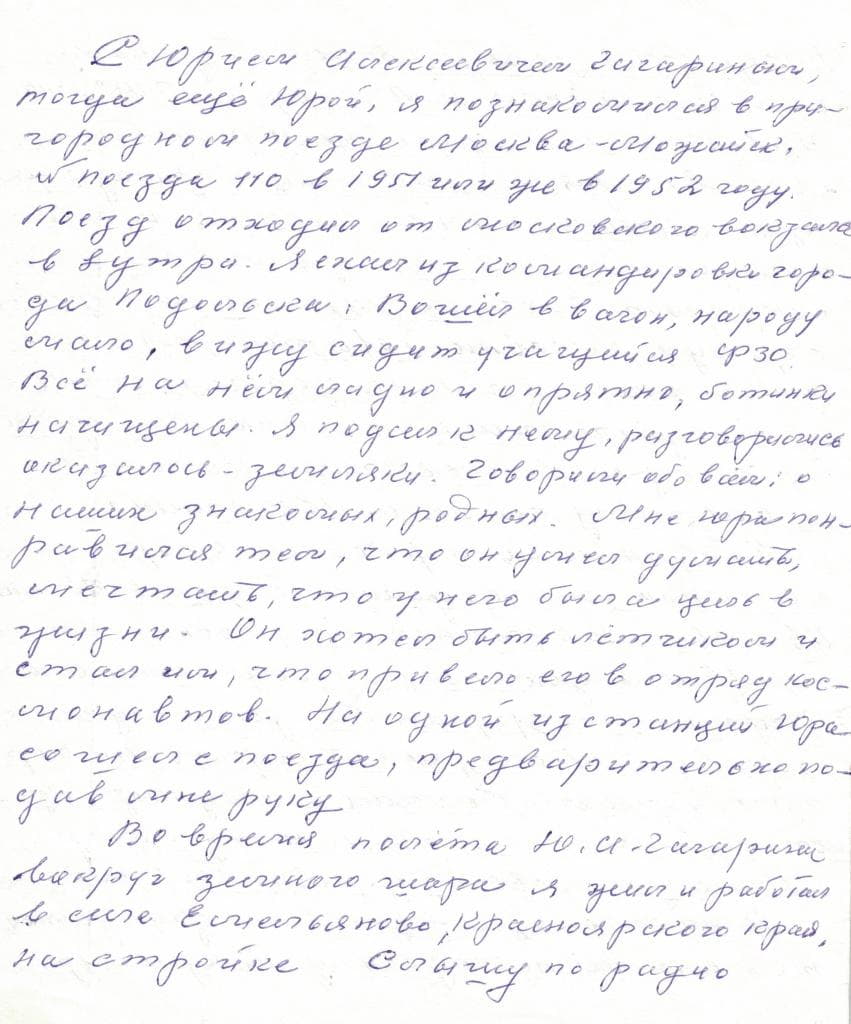 С Юрием Алексеевичем Гагариным,
тогда ещё Юрой, я познакомился в при-
городном поезде Москва-Можайск.
№ поезда 110 в 1951 или же в 1952 году.
Поезд отходил от московского вокзала
в 8 утра. Я ехал из командировки горо-
да Подольска. Вошёл в вагон, народу
мало, вижу сидит учащийся ФЗО.
Всё на нём ладно и опрятно, ботинки
начищены. Я подсел к нему, разговорились
оказалось - земляки. Говорили обо всём: о
наших знакомых, родных. Мне Юра пон-
равился тем, что он умел думать,
мечтать, что у него была цель в
жизни. Он хотел быть лётчиком и
стал им, что привело его в отряд кос-
монавтов. На одной из станций Юра
сошел с поезда, предварительно по-
дав мне руку
Во время полёта Ю.А. Гагарина
вокруг земного шара я жил и работал
в селе Емельяново, Красноярского края,
на стройке. Слышу по радио